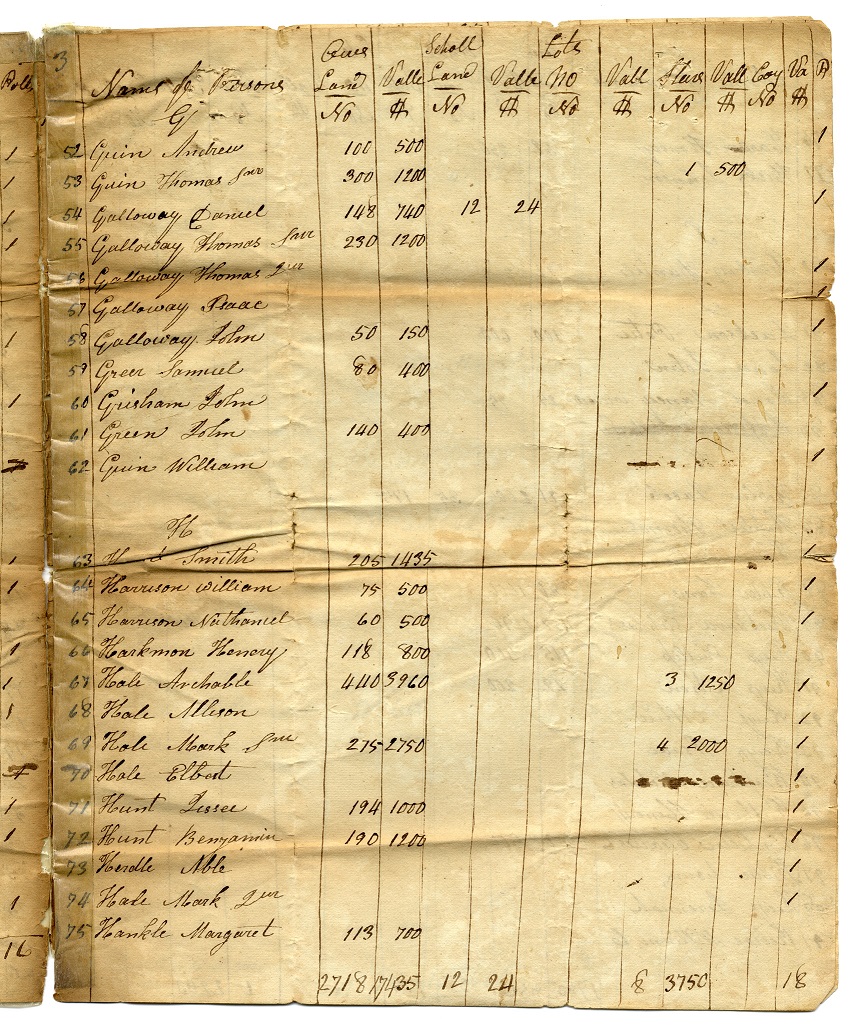 3
Acres Scholl Lots
Polls Names of Persons Land Valle Land Valle No Vall Slave Vall Coy Va P
G No $ No $ No $ No $ No $
52 Guin Andrew 100 500 1
53 Guin Thomas Snr 300 1200 1 500
54 Galloway Daniel 148 740 12 24 1
55 Galloway Thomas Snr 230 1200
56 Galloway Thomas Jur 1
57 Galloway Isaac 1
58 Galloway John 50 150 1
59 Greer Samuel 80 400
60 Grisham John 1
61 Green John 140 400
62 Guin William 1
H
63 Smith 205 1435 1
64 Harrison William 75 500 1
65 Harrison Nathaniel 60 500 1
66 Harkmon Henory 118 800
67 Hale Archable 440 3960 3 1250 1
68 Hale Allison 1
69 Hale Mark Snr 275 2750 4 2000 1
70 Hale Elbert 1
71 Hunt Jessee 194 1000 1
72 Hunt Benjamin 190 1200 1
73 Herdle Able 1
74 Hale Mark Jur 1
75 Hankle Margaret 113 700
16 2718 17435 12 24 8 3750 18